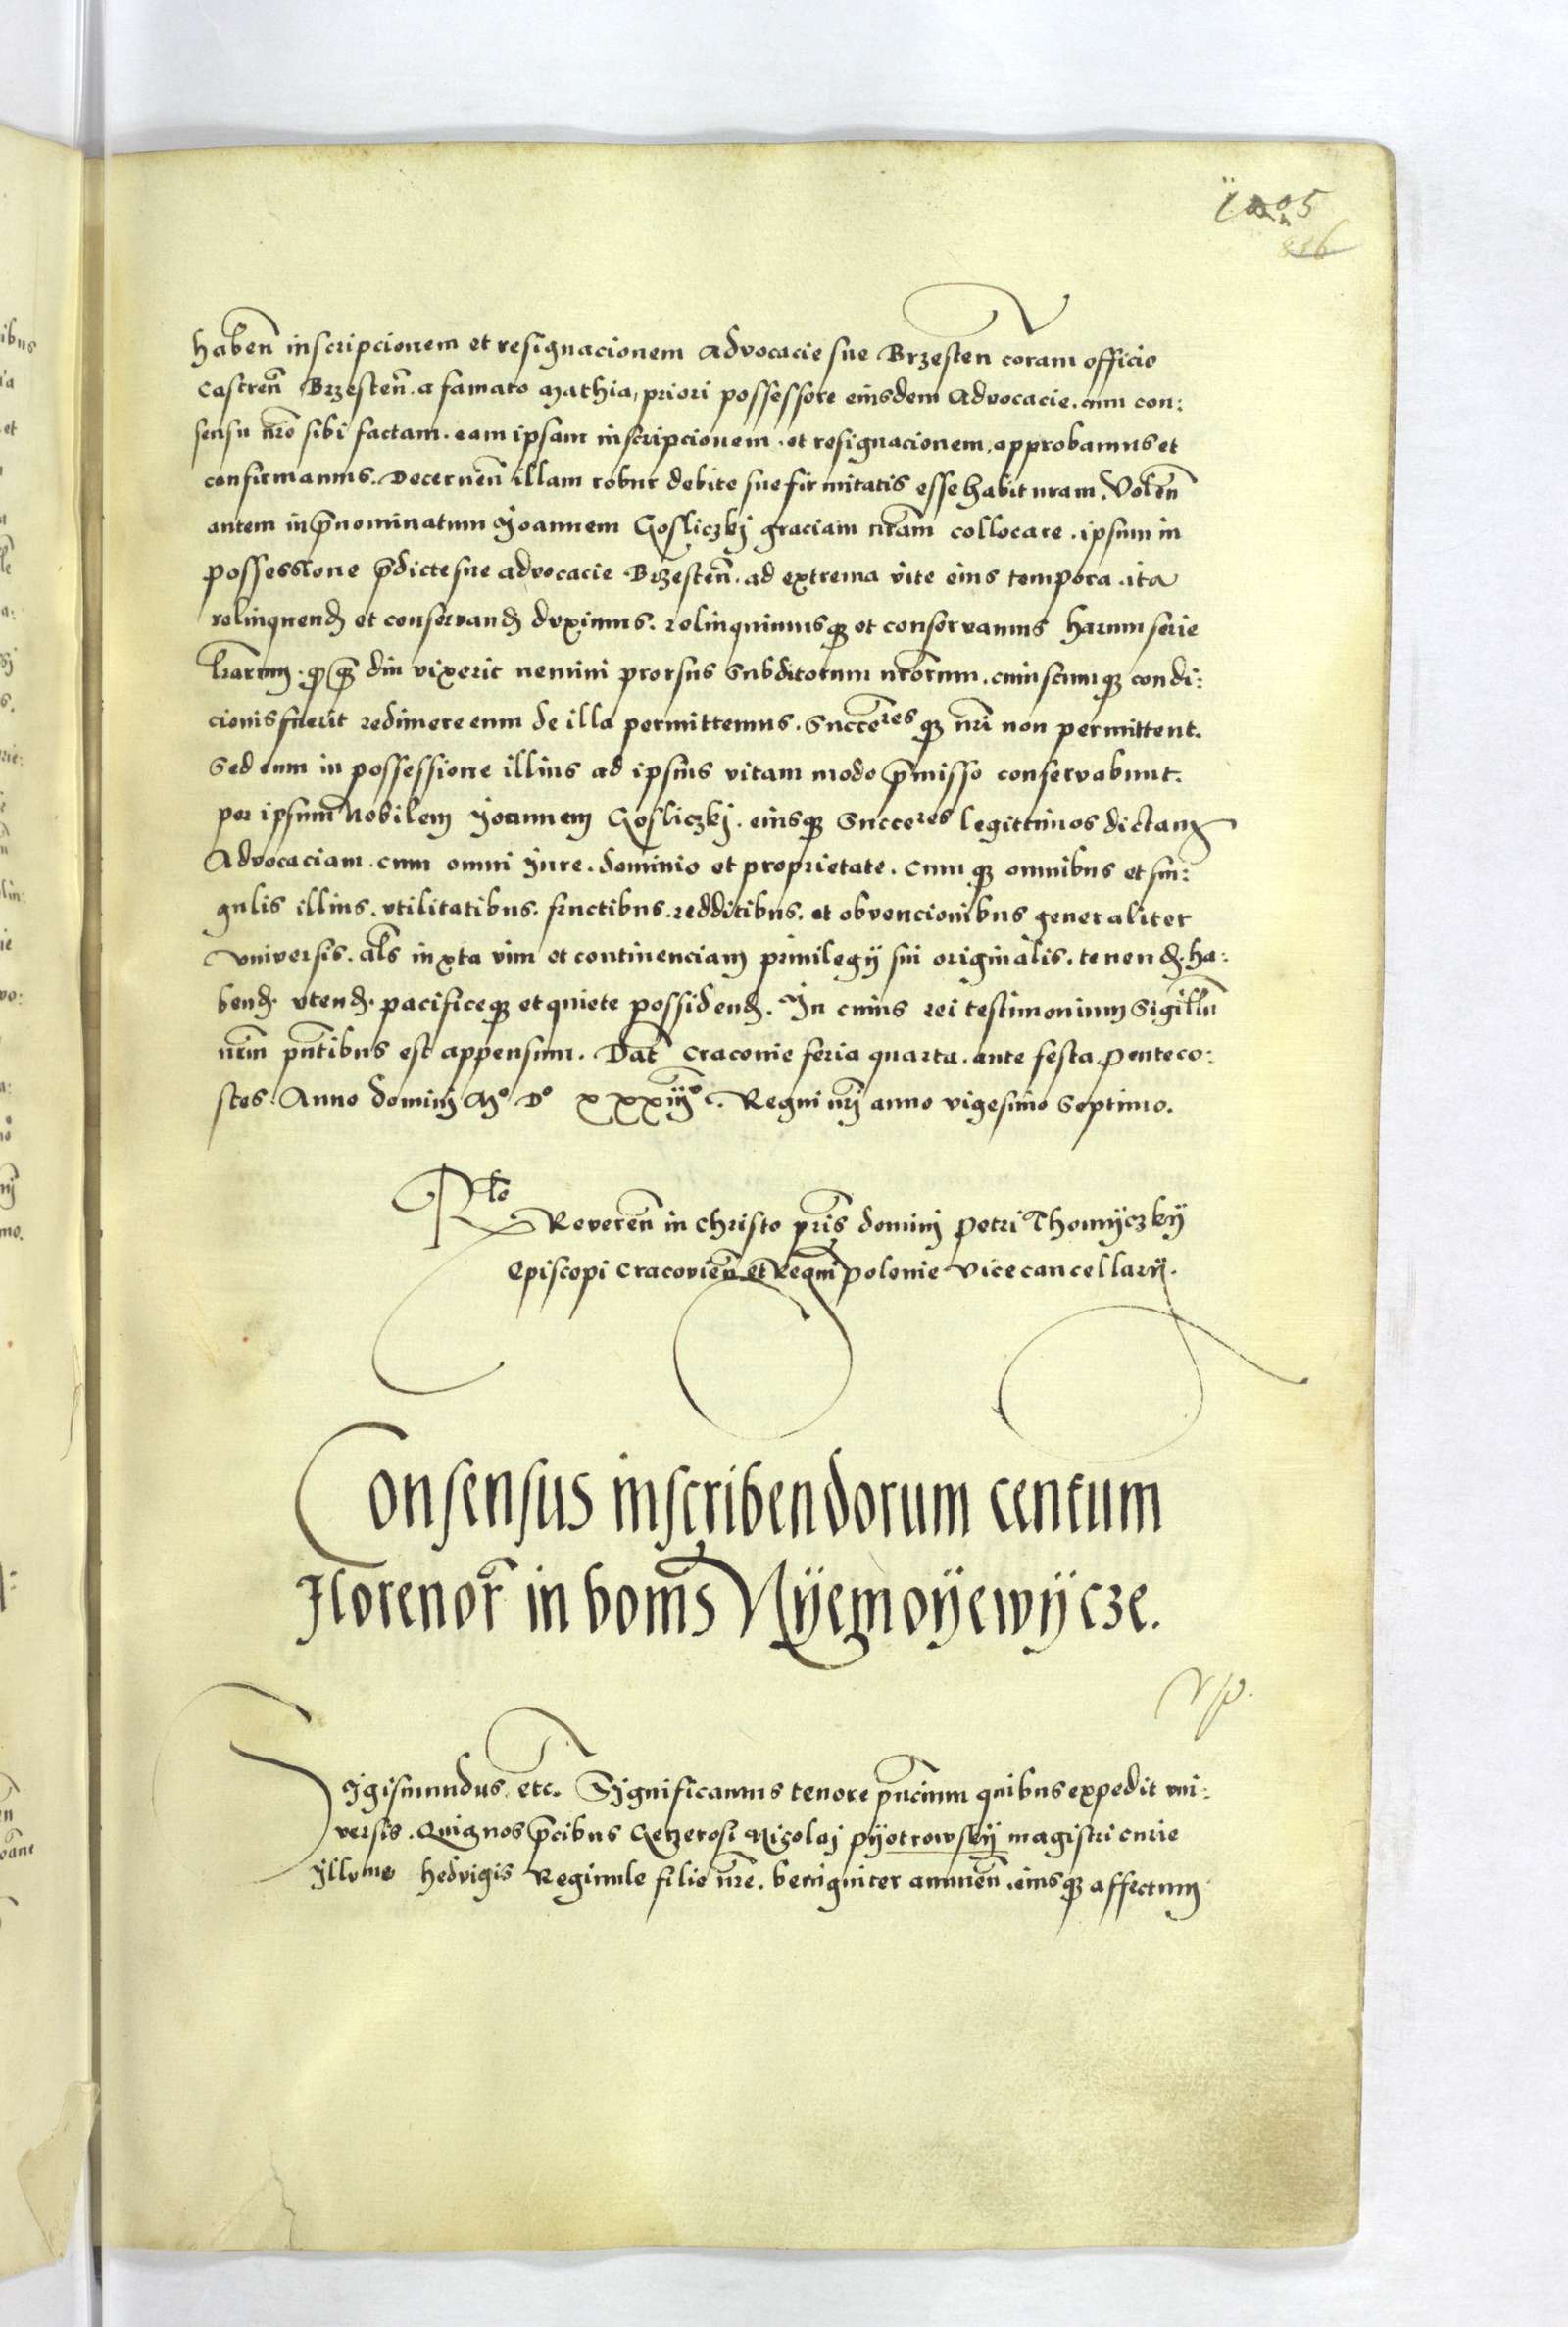 habeñ inscripcionem et resignacionem Advocacie sue Brzesteñ coram officio
Castreñ Brzesteñ. a famato Mathia, priori possessore eiusdem Advocacie. cum con:
sensu nr̃o sibi factam. eam ipsam inscripcionem. et resignacionem. approbamus et
confirmamus. Decerneñ illam robur debite sue firmitatis esse habituram. Voleñ
autem in p̃nominatum Joannem Gosliczkj graciam nr̃am collocare. ipsum in
possessione p̃dicte sue advocacie Brzesteñ. ad extrema vite eius tempora. ita
relinquend̃ et conservand̃ duximus. relinquimusqꝫ et conservamus harum serie
l̃rarum. qͦqꝫ diu vixerit nemini prorsus Subditorum nr̃orum. cuiuscumqꝫ condi:
cionis fuerit redimere eum de illa permittemus. Succeͬˢ qꝫ nr̃i non permittent.
Sed eum in possessione illius ad ipsius vitam modo p̃misso conservabunt.
per ipsum Nobilem Joannem Gosliczkj. eiusqꝫ Succeͬˢ legittimos dictam
Advocaciam. cum omni Jure. dominio et proprietate. Cumqꝫ omnibus et sin:
gulis illius. utilitatibus. fructibus. redditibus. et obvencionibus generaliter
universis. al̃s iuxta vim et continenciam privilegij sui originalis. tenend̃. ha:
bend̃. utend̃. pacificeqꝫ et quiete possidend̃. In cuius rei testimonium Sigillũ
nr̃m pñtibus est appensum. Dat̃ Cracovie feria quarta. ante festa Penteco:
stes. Anno domini Mͦ Dͦ xxxiijͦ. Regni nr̃j anno vigesimo Septimo.
Rlo
Revereñ in Christo pr̃is dominj Petri Thomyczkÿ
Episcopi Cracovieñ et Regni Polonie Vicecancellarij.
Consensus inscribendorum centum
Florenor̃ in bonis Nÿemoÿewÿcze.
Sigismundus etc̃. Significamus tenore pñcium quibus expedit uni:
versis. Quia nos p̃cibus Generosi Nicolaj Pÿotrowskÿ magistri curie
Jllme Hedvigis Reginule filie nr̃e. benigniter annueñ. eiusqꝫ affectum